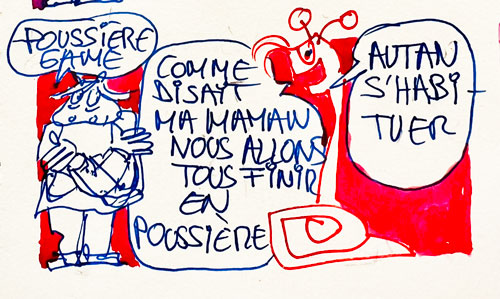 POUSSIÈRE
GAME
COMME
DISAIT
MA MAMAN
NOUS ALLONS
TOUS FINIR
EN
POUSSIÈRE
AUTAN
S'HABI-
TUER